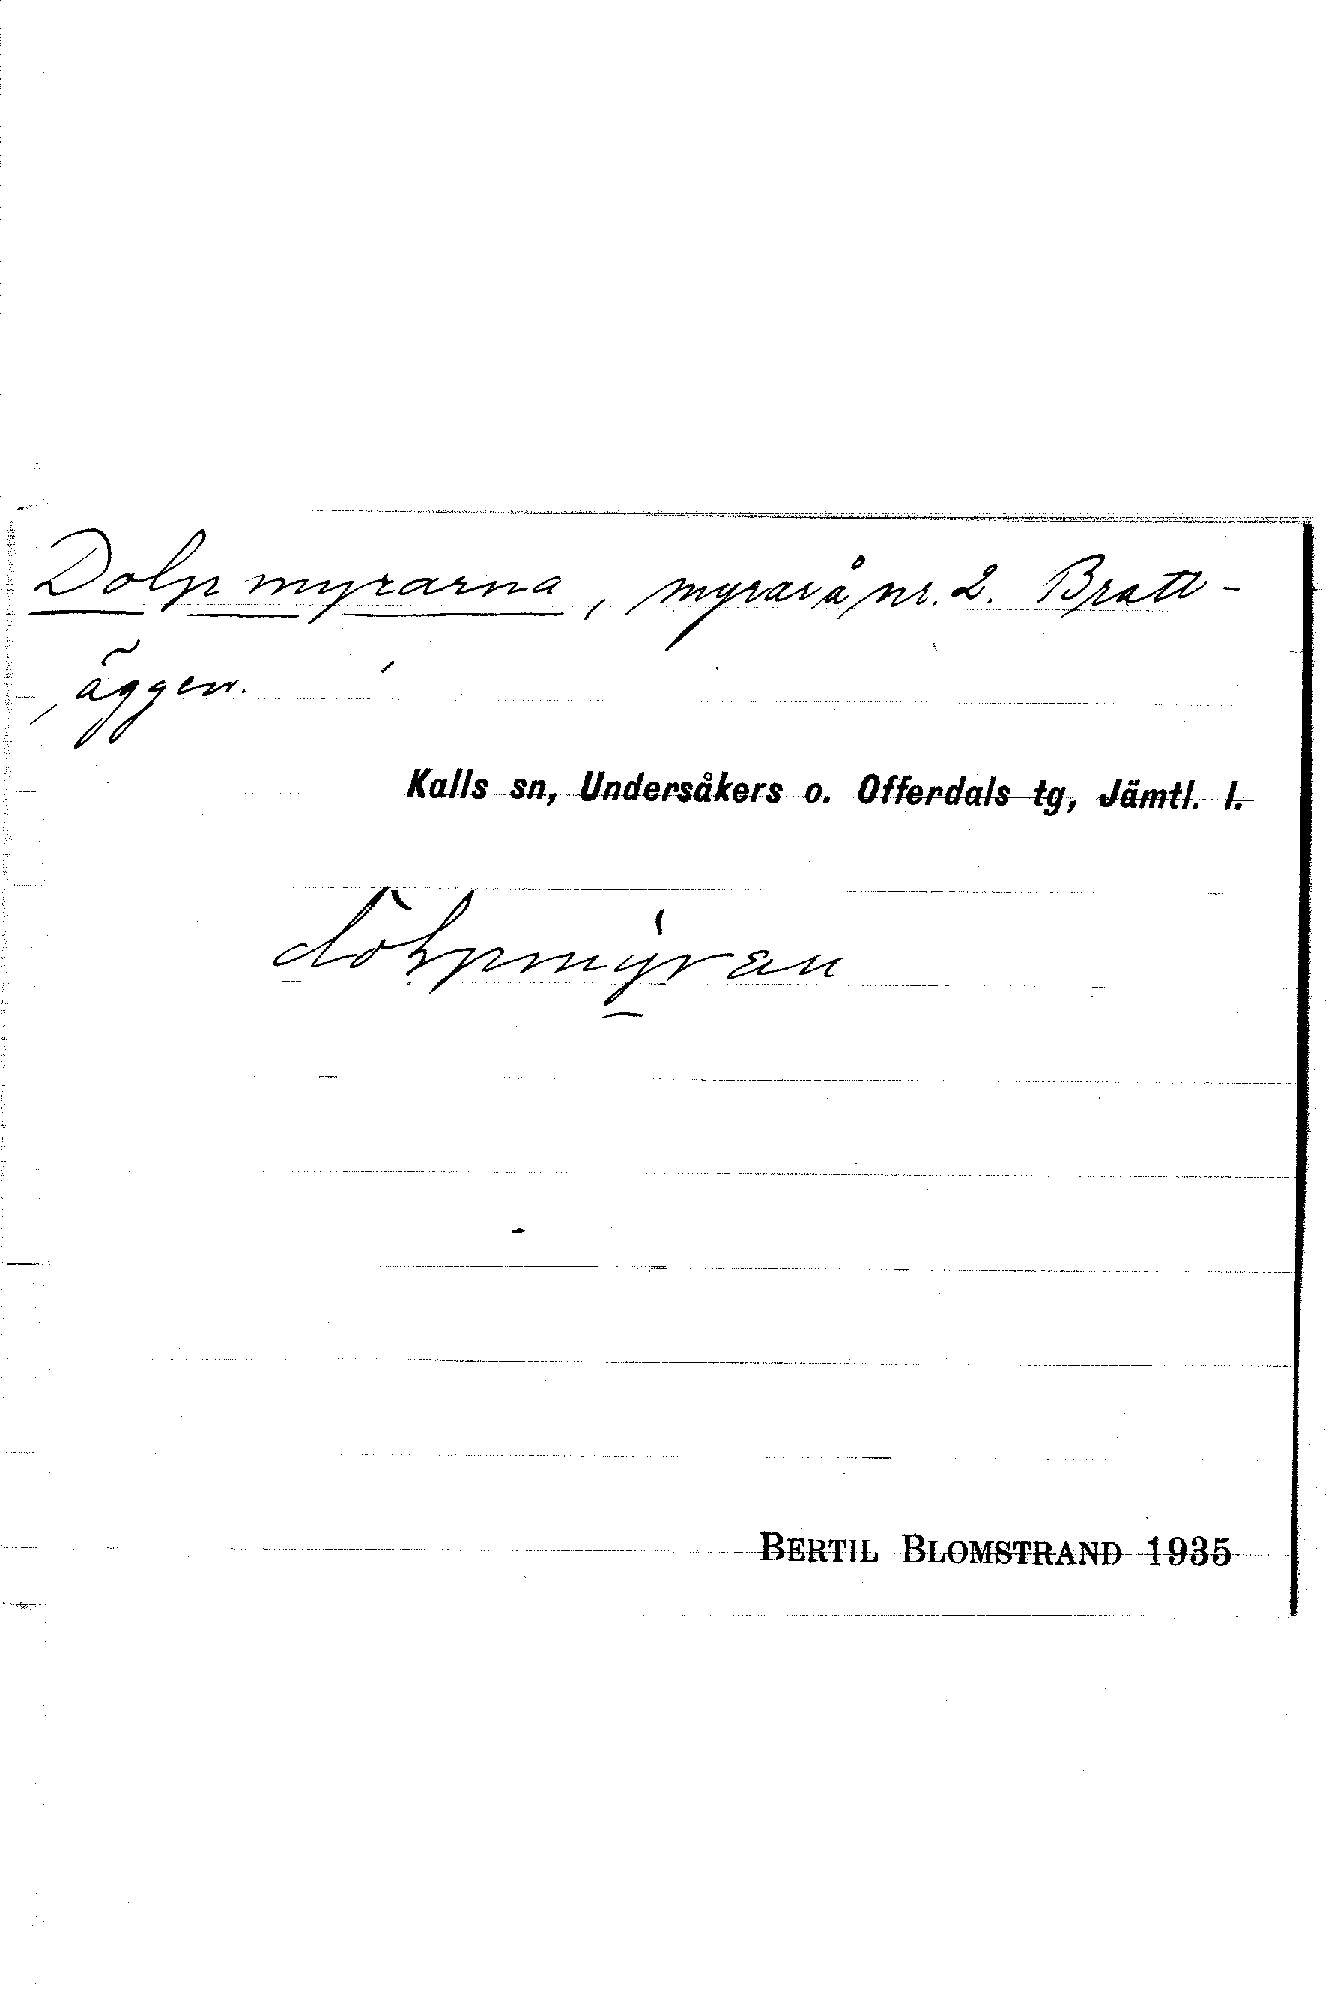 Dolpmyrarna, myrar å nr. 2. Bratt-
äggen.
Kalls sn, Undersåkers o. Offerdals tg, Jämtl. l.
BERTIL BLOMSTRAND 1935